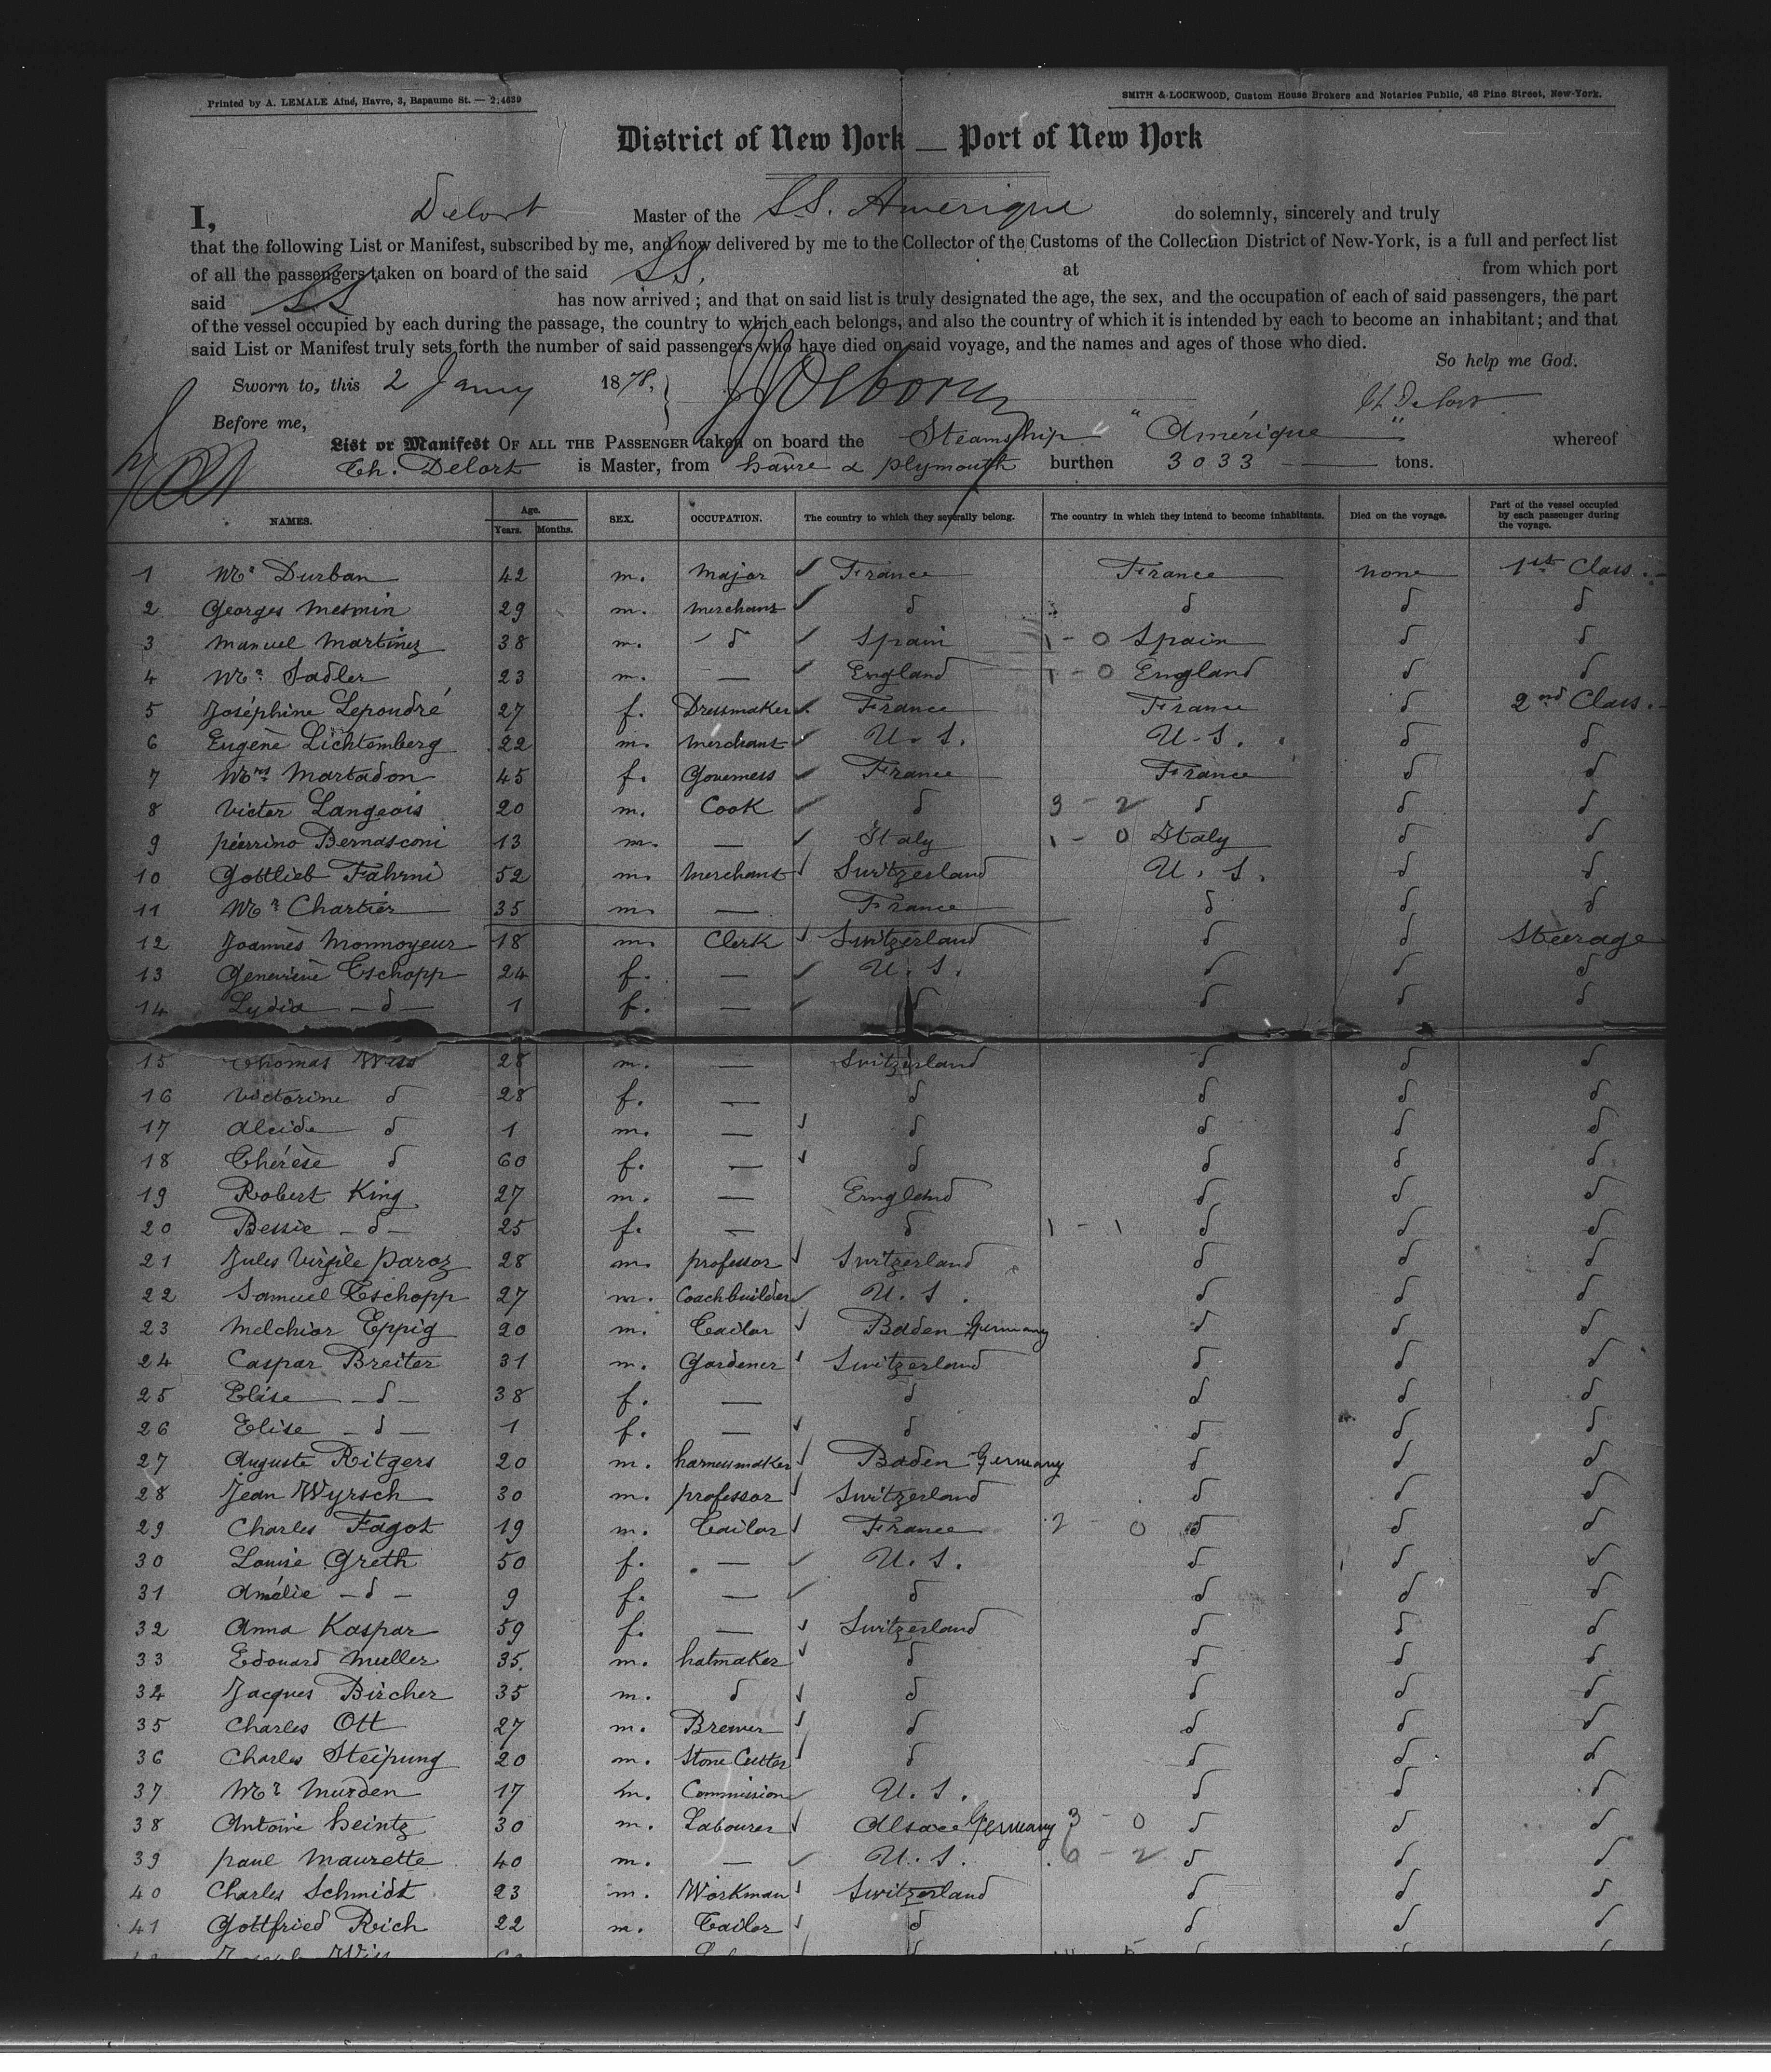 Printed by A. LEMALE Aîné, Havre, 3, Bapaume St. — 2,4639
SMITH & LOCKWOOD, Custom House Brokers and Notaries Public, 48 Pine Street, New-York.
District of New York — Port of New York
I, Delort Master of the S.S. Amerique do solemnly, sincerely and truly
that the following List or Manifest, subscribed by me, and now delivered by me to the Collector of the Customs of the Collection District of New-York, is a full and perfect list
of all the passengers taken on board of the said SS, at from which port
said SS has now arrived; and that on said list is truly designated the age, the sex, and the occupation of each of said passengers, the part
of the vessel occupied by each during the passage, the country to which each belongs, and also the country of which it is intended by each to become an inhabitant; and that
said List or Manifest truly sets forth the number of said passengers who have died on said voyage, and the names and ages of those who died.
So help me God.
Sworn to, this 2 Jany 1878. Osborn
Ch Delort
Before me,
List or Manifest OF ALL THE PASSENGER taken on board the Steamship "Amérique" whereof
Ch. Delort is Master, from havre & plymouth burthen 3033 tons.
NAMES. Age. Years. Months. SEX. OCCUPATION. The country to which they severally belong. The country in which they intend to become inhabitants. Died on the voyage. Part of the vessel occupied by each passenger during the voyage.
1 Mr Durban 42 m. Major France France none 1st Class.
2 Georges Mesmin 29 m. Merchant d d d d
3 Manuel Martinez 38 m. d Spain 1 - 0 Spain d d
4 Mr Sadler 23 m. — England 1 - 0 England d d
5 Joséphine Lepoudré 27 f. Dressmaker France France d 2nd Class.
6 Eugène Lichtemberg 22 m. Merchant U.S. U.S. d d
7 Mrs Martadon 45 f. Governess France France d d
8 Victor Langeois 20 m. Cook d 3 - 2 d d d
9 pierrino Bernasconi 13 m. — Italy 1 - 0 Italy d d
10 Gottlieb Fahrni 52 m. Merchant Switzerland U.S. d d
11 Mr Chartier 35 m. — France d d d
12 Joannès Monnoyeur 18 m. Clerk Switzerland d d Steerage
13 Geneviève Tschopp 24 f. — U.S. d d d
14 Lydia - d - 1 f. — d d d d
15 Thomas Wiss 28 m. — Switzerland d d d
16 Victorine d 28 f. — d d d d
17 Alcide d 1 m. — d d d d
18 Thérèse d 60 f. — d d d d
19 Robert King 27 m. — England d d d
20 Bessie - d - 25 f. — d 1 - 1 d d d
21 Jules Virgile paroz 28 m. professor Switzerland d d d
22 Samuel Tschopp 27 m. Coachbuilder U.S. d d d
23 Melchior Eppig 20 m. Tailor Baden Germany d d d
24 Caspar Breiter 31 m. Gardener Switzerland d d d
25 Elise - d - 38 f. — d d d d
26 Elise - d - 1 f. — d d d d
27 Auguste Ritgers 20 m. harnessmaker Baden Germany d d d
28 Jean Wyrsch 30 m. professor Switzerland d d d
29 Charles Fagot 19 m. Tailor France 2 - 0 d d d
30 Louise Greth 50 f. — U.S. d d d
31 Amélie - d - 9 f. — d d d d
32 Anna Kaspar 59 f. — Switzerland d d d
33 Edouard Muller 35. m. hatmaker d d d d
34 Jacques Bircher 35 m. d d d d d
35 Charles Ott 27 m. Brewer d d d d
36 Charles Steipung 20 m. Stone Cutter d d d d
37 Mr Murden 17 m. Commission U.S. d d d
38 Antoine heintz 30 m. Labourer Alsace Germany 3 - 0 d d d
39 paul Maurette 40 m. — U.S. 6 - 2 d d d
40 Charles Schmidt 23 m. Workman Switzerland d d d
41 Gottfried Reich 22 m. Tailor d d d d